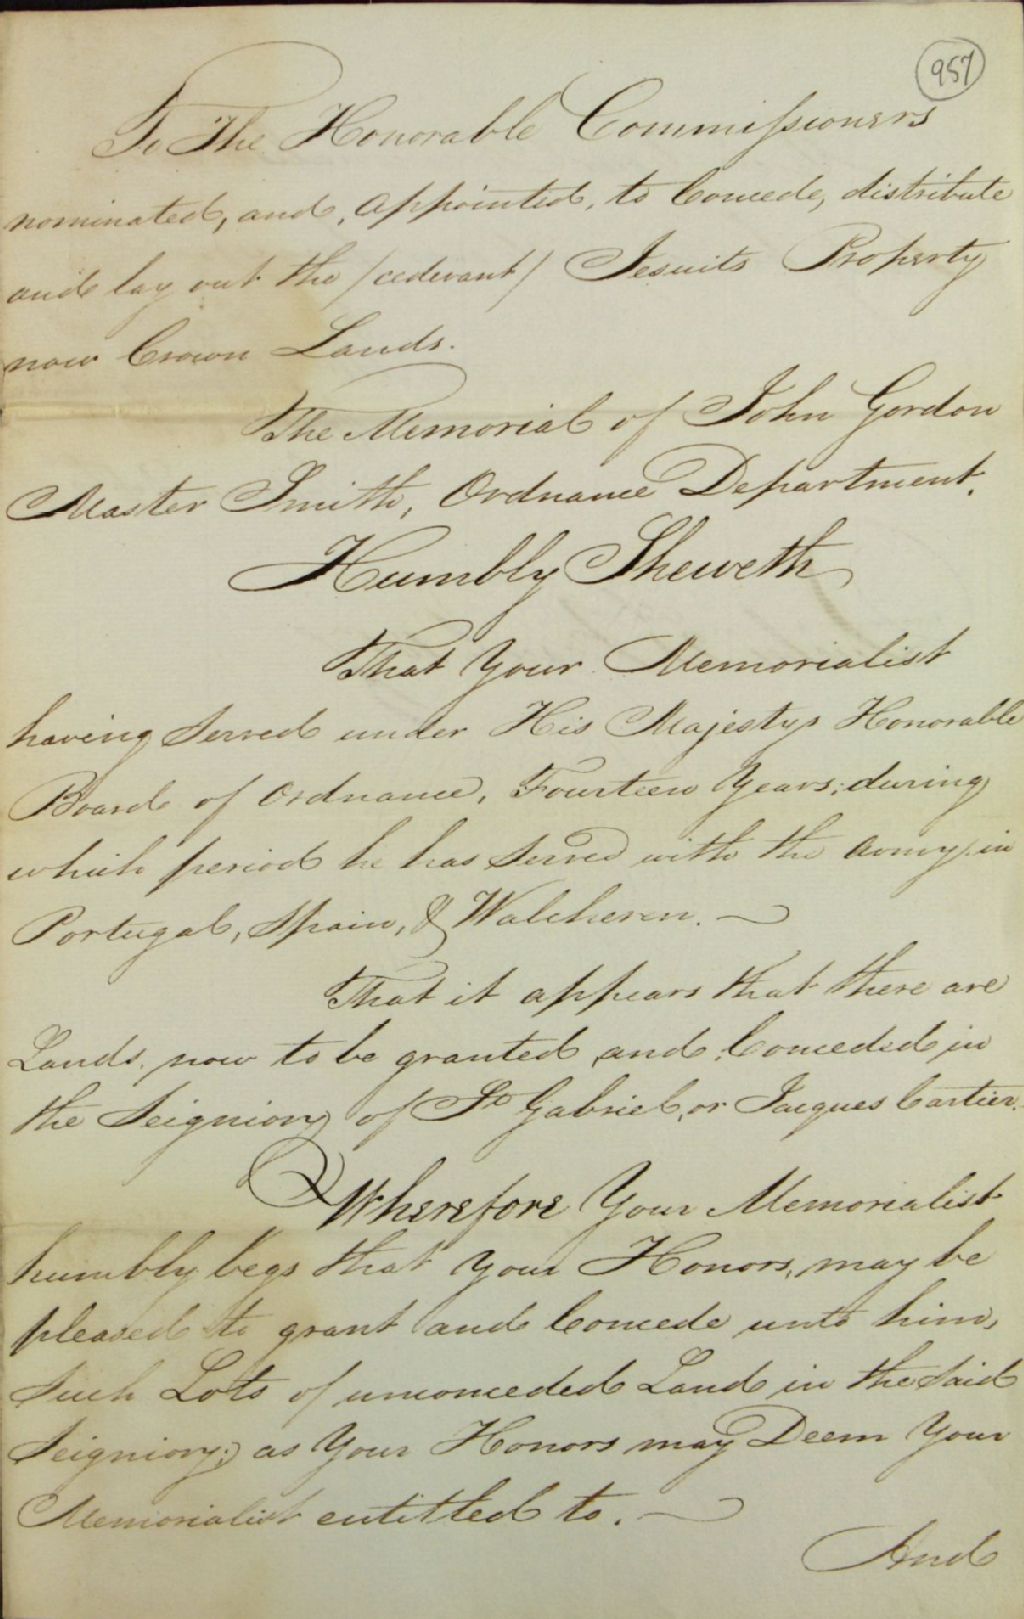 957
To The Honorable Commissioners
nominated, and, appointed, to Concede, distribute
and lay out the /cedevant/ Jesuits Property
now Crown Lands.
The Memorial of John Gordon
Master Smith, Ordnance Department.
Humbly Sheweth
That Your Memorialist
having Served under His Majestys Honorable
Board of Ordnance, Fourteen Years; during
which period he has Served with the Army in
Portugal, Spain, & Walcheren.
That it appears that there are
Lands, now to be granted and Conceded in
the Seigniory of St Gabriel, or Jacques Cartier.
Wherefore Your Memorialist
humbly begs that Your Honors, may be
pleased to grant and Concede unto him,
Such Lots of unconceded Land in the Said
Seigniory; as Your Honors may Deem Your
Memorialist entitled to.
And